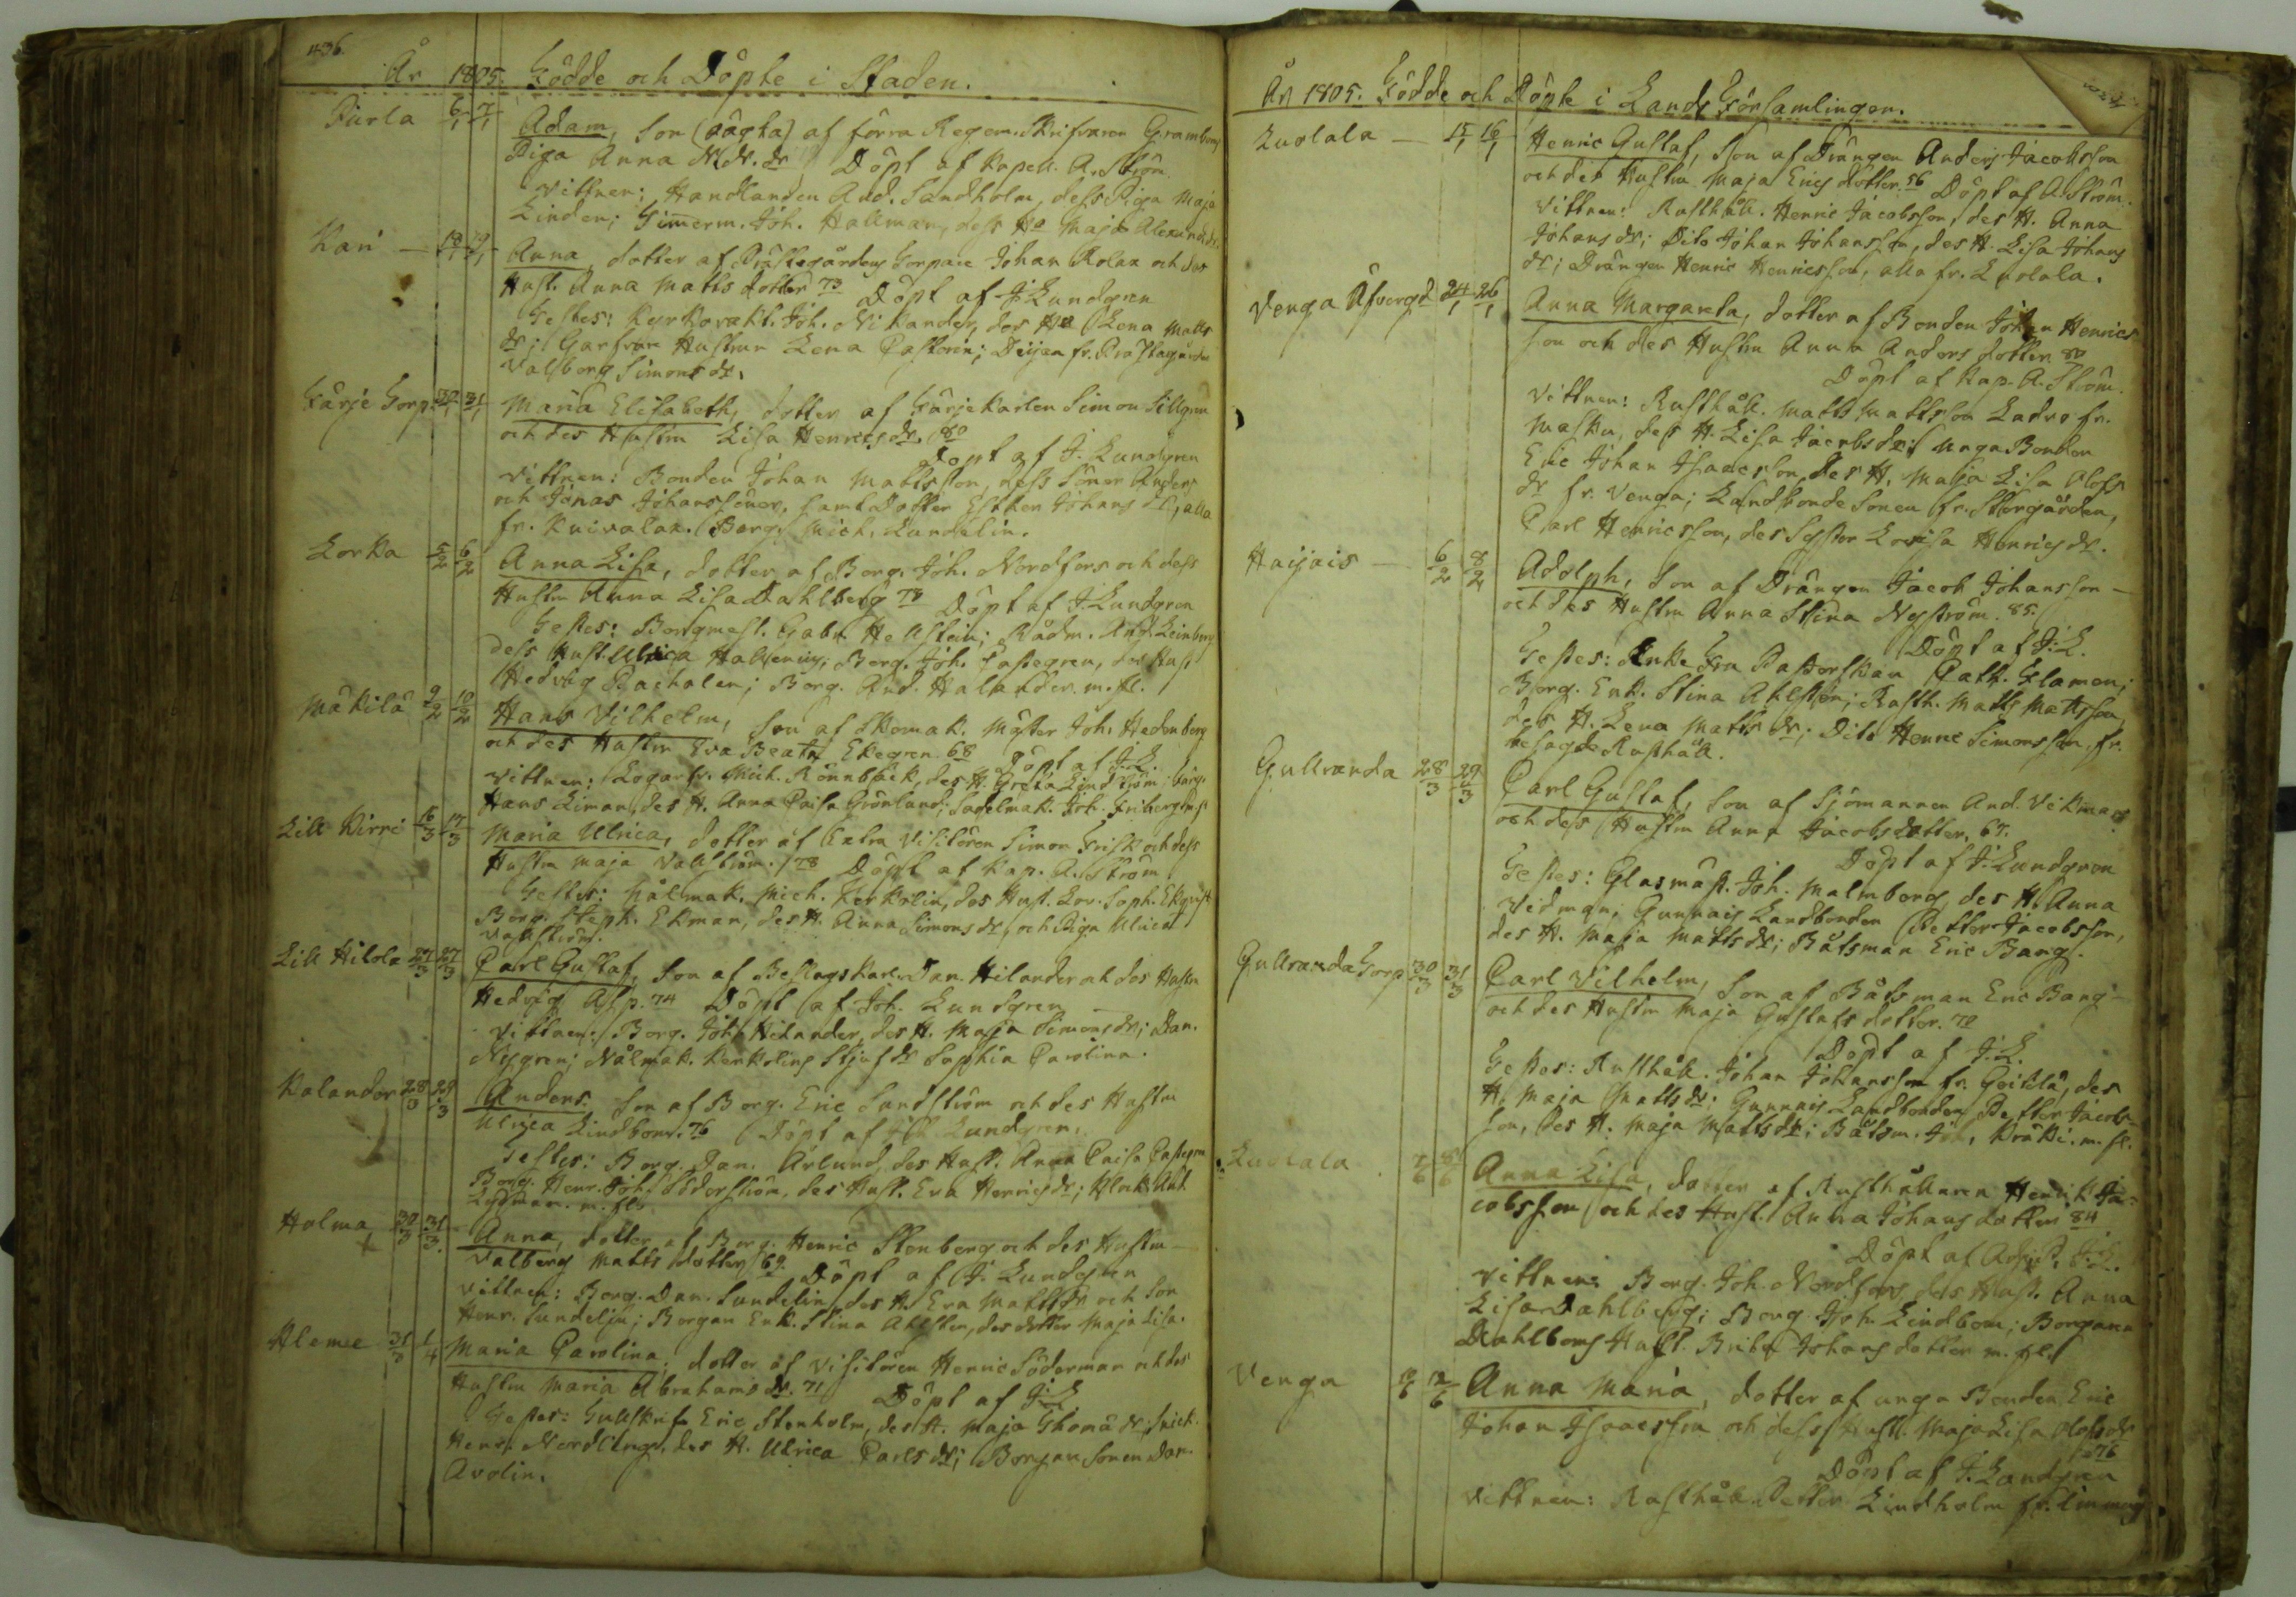 436.
År 1805. Födde och Döpte i Staden.
Purla 6/1 7/1 Adam, son (oägta) af förra Regem. Skrifvaren Gramberg
Piga Anna Döpt af Kapell. A. Ström
Vittnen: Handlanden And. Sandholm, dess Piga Maja
Linden; Timerm. Joh. Hallman, dess Ho Maja Alexand. dr.
Kari — 18/1 19/1 Anna, dotter af Prästegårdens Torpare Johan Rolax och des
Hust. Anna Matts dotter 73 Döpt af J. Lundgren
Testes: Kyrkovakt. Joh. Nikander, des Ho Lena Matts
dr; Garfvar Hustrun Lena Castorin; Drängen fr. Prästegården
Valborg Simons dr.
Färje Torp. 30/1 31/1 Maria Elisabeth, dotter af Färjekarlen Simon Sillgren
och des Hustru Lisa Henrics dr. 80
Döpt af J. Lundgren
Vittnen: Bonden Johan Mattsson, dess Söner Anders
och Jonas Johanssöner, samt Dotter Esther Johans dr, alla
fr. Kuivalax. Borg. Mich. Lundelin.
Lorka 5/2 6/2 Anna Lisa, dotter af Borg. Joh. Nordfors och dess
Hustru Anna Lisa Dahlberg 78 Döpt af J. Lundgren
Testes: Borgmest. Gabr. Hellstein; Rådm. And. Leinberg
dess Hust. Ulrica Hallenius; Borg. Joh. Castegren, des Hust
Hedvig Rachalen; Borg. And. Halander. m. fl.
Mäkilä 9/2 10/2 Hans Vilhelm, son af Skomak. Mäster Joh. Hedenberg
och des Hustru Eva Beata Ekegren 68 Döpt af J. L.
Vittnen: Logarfv. Mich. Rönnbäck, des H. Greta Lindström; Borg.
Hans Liman, des H. Anna Caisa Grönlund; Sadelmak. Joh. Friberg
Lill Kirri 16/3 17/3 Maria Ulrica, dotter af Extra Visitören Simon Frisk och dess
Hustru Maja Vallström. 78 Döpt af Kap. A. Ström.
Testes: Nålmak. Mich. Kerkolin, des Hust. Lov. Soph. Ekqvist
Borg. Steph. Ekman, des H. Anna Simons dr, och Piga Ulrica
Vallström.
Lill Hilola 24/3 27/3 Carl Gustaf, son af Beslagskarl. Dan. Hilander och des Hustru
Hedvig Asp. 74 Döpt af Joh. Lundgren
Vittnen: Borg. Joh. Hilander, des H. Maja Simons dr; Dan.
Nygren; Nålmak. Kerkolins Styfdr Sophia Carolina.
Kalander 28/3 29/3 Anders. son af Borg. Eric Sundström och des Hustru
Ulrica Lindbom. 76 Döpt af Joh. Lundgren.
Testes: Borg. Dan. Arlund, des Hust. Anna Caisa Castegren
Borg. Henr. Joh. Söderström, des Hust. Eva Henrics dr; Klock. And.
Lydman. m. fl.
Holma + 30/3 31/3. Anna, dotter af Borg. Henric Stenberg och des Hustru
Valborg Matts dotter 69. Döpt af J. Lundgren
Vittnen: Borg. Dan. Sundelin, des H. Eva Matts dr och son
Henr. Sundelin; Borgar Enk. Stina Ahlsten, des dotter Maja Lisa.
Klemee 31/3 1/4 Maria Carolina, dotter af Visitören Henric Söderman och des
Hustru Maria Abrahams dr. 71 Döpt af J. L.
Testes: Tullskrif. Eric Stenholm, des H. Maja Thomä dr; Snick.
Henr. Nordling, des H. Ulrica Carls dr; Borgar Sonen Dan.
Avolin.
År 1805. Födde och Döpte i Lands Församlingen.
Luolala — 15/1 16/1 Henric Gustaf, Son af Drängen Anders Jacobsson
och des Hustru Maja Erics dotter. 56 Döpt af A. Ström.
Vittnen: Rusthåll. Henric Jacobsson, des H. Anna
Johans dr; Dito Johan Johansson, des H. Lisa Johans
dr; Drängen Henric Henricsson, alla fr. Luolala.
Venga Åfvergd 24/1 26/1 Anna Margareta, dotter af Bonden Johan Henrics
son och des Hustru Anna Anders dotter 80
Döpt af Kap. A. Ström.
Vittnen: Rusthåll. Matts Mattsson Ladvo fr.
Masku, des H. Lisa Jacobs dr; Unga Bonden
Eric Johan Isaacsson, des H. Maja Lisa Olofs
dr fr. Venga; Landbonde Sonen fr. Storgården,
Carl Henricsson, des Syster Lovisa Henrics dr.
Haijais — 6/2 8/2 Adolph, son af Drängen Jacob Johansson —
och des Hustru Anna Stina Nyström. 85.
Döpt af J. L.
Testes: Enke Fru Pastorskan Cath. Flamen;
Borg. Enk. Stina Ahlsten; Rusth. Matts Mattsson,
des H. Lena Matts dr; Dito Henric Simonsson, fr.
besagde Rusthåll.
Gullranda 28/3 29/3 Carl Gustaf, son af Sjömannen And. Vikman
och dess Hustru Anna Jacobs dotter. 67.
Döpt af J. Lundgren
Testes: Glasmäst. Joh. Malmberg, des H. Anna
Vidman; Gunnais Landbonden Petter Jacobsson,
des H. Maja Matts dr; Båtsman Eric Bang.
Gullranda Torp 30/3 31/3 Carl Vilhelm, son af Båtsman Eric Bang —
och des Hustru Maja Gustafs dotter. 70
Döpt af J. L.
Testes: Rusthåll. Johan Johansson fr. Geitilä, des
H. Maja Matts dr; Gunnais Landbonden Petter Jacobs-
son, des H. Maja Matts dr; Båtsm. Joh. Kräki. m. fl.
Luolala 7/6 8/6 Anna Lisa, dotter af Rusthållaren Henrik Ja-
cobsson och des Hust. Anna Johans dotter 84
Döpt af J. L.
Vittnen: Borg. Joh. Nordfors, des Hust. Anna
Lisa Dahlberg; Borg. Joh. Lindbom; Borgaren
Dahlbergs Hust. Brita Johans dotter m. fl.
Venga 10/6 12/6 Anna Maria, dotter af unga Bonden Eric
Johan Isaacsson och dess Hust. Maja Lisa Olofs dr
76
Döpt af J. Lundgren
Vittnen: Rusthåll. Petter Lindholm fr.